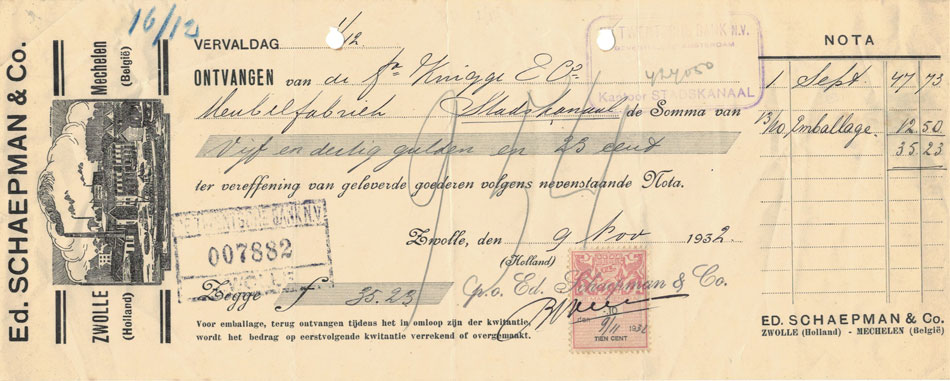 Ed. SCHAEPMAN & Co.
ZWOLLE (Holland)
Mechelen (België)
16/12
VERVALDAG 1/12
ONTVANGEN van de Fa Knigge & Co
Meubelfabriek Stadskanaal de Somma van
Vijf en dertig gulden en 23 cent
ter vereffening van geleverde goederen volgens nevenstaande Nota.
Zwolle, den 9 Nov 1932
(Holland)
Zegge f 35.23
p.o. Ed. Schaepman & Co.
Voor emballage, terug ontvangen tijdens het in omloop zijn der kwitantie,
wordt het bedrag op eerstvolgende kwitantie verrekend of overgemaakt.
TWENTSCHE BANK N.V.
AMSTERDAM
424050
Kantoor STADSKANAAL
007882
10
9/11 1932
TIEN CENT
NOTA
1 Sept 47 73
13/10 Emballage. 12.50
35.23
ED. SCHAEPMAN & Co.
ZWOLLE (Holland) - MECHELEN (België)